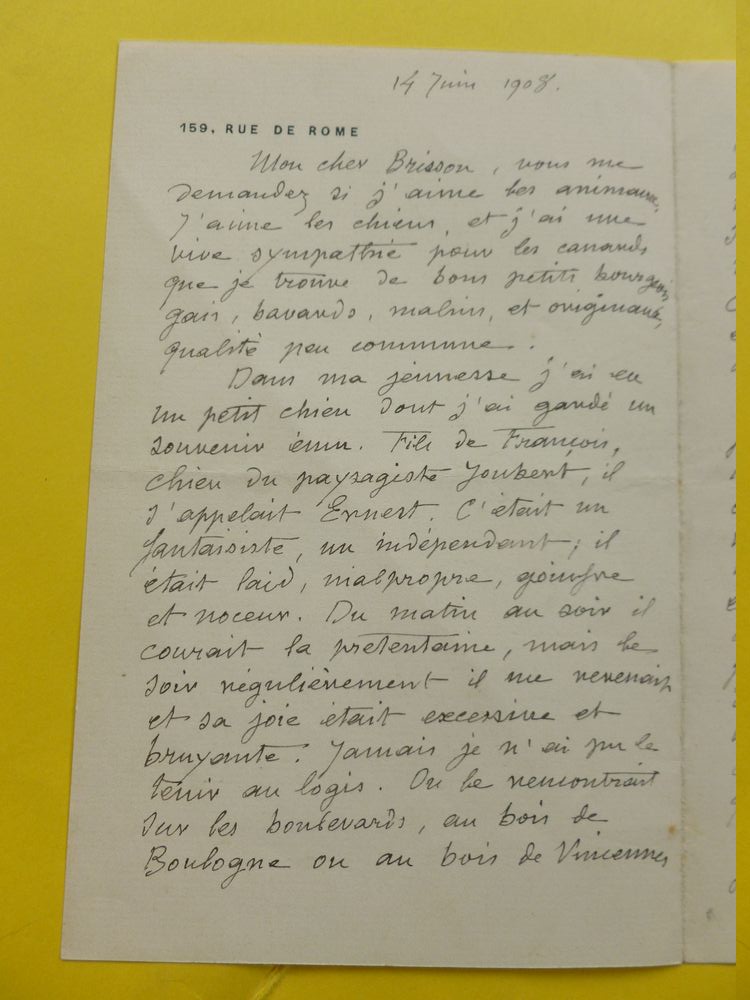 14 Juin 1908.
159, RUE DE ROME
Mon cher Brisson, vous me
demandez si j'aime les animaux,
J'aime les chiens, et j'ai une
vive sympathie pour les canards
que je trouve de bons petits bourgeois
gais, bavards, malins, et originaux,
qualité peu commune.
Dans ma jeunesse j'ai eu
un petit chien dont j'ai gardé un
souvenir ému. Fils de François,
chien du paysagiste Joubert, il
s'appelait Ernest. C'était un
fantaisiste, un indépendant; il
était laid, malpropre, goinfre
et noceur. Du matin au soir il
courait la prétentaine, mais le
soir régulièrement il me revenait
et sa joie était excessive et
bruyante. Jamais je n'ai pu le
tenir au logis. On le rencontrait
sur les boulevards, au bois de
Boulogne ou au bois de Vincennes